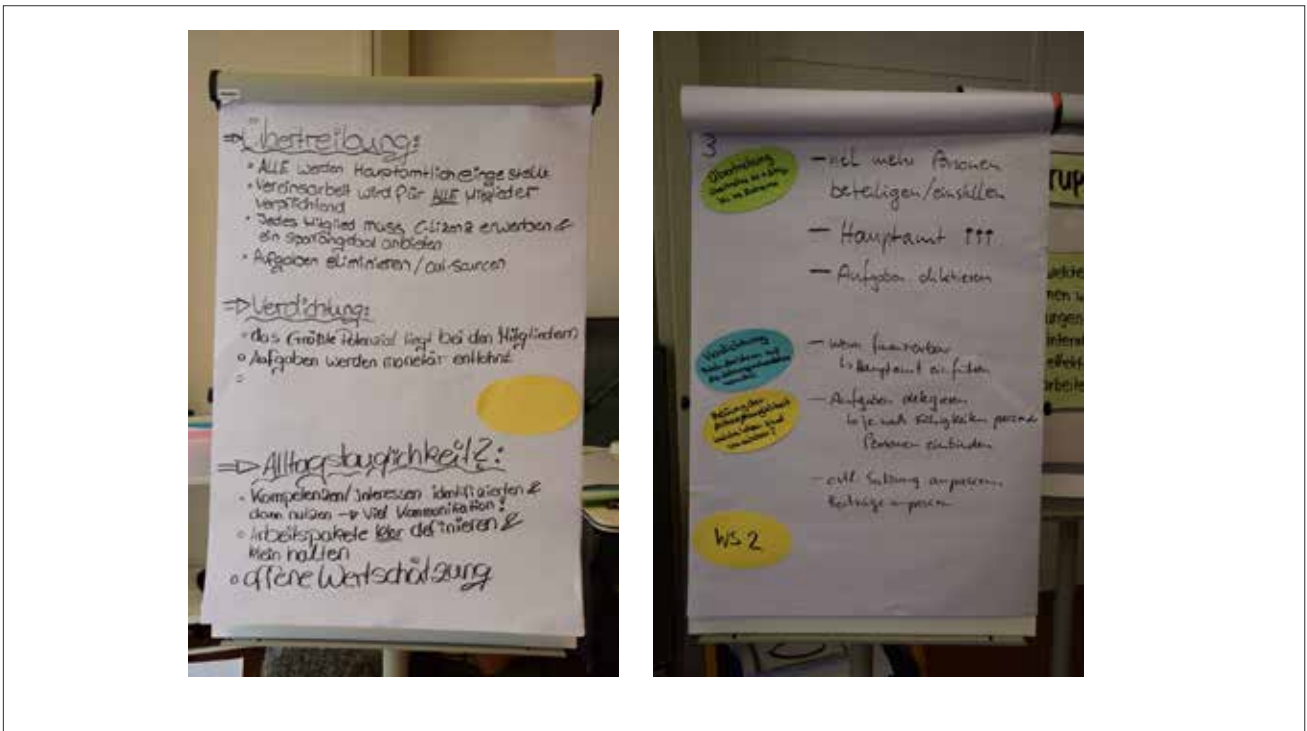 ⇒ Übertreibung:
• ALLE werden Hauptamtlich eingestellt
• Vereinsarbeit wird für ALLE Mitglieder
verpflichtend
• Jedes Mitglied muss C-Lizenz erwerben &
ein Sportangebot anbieten
• Aufgaben eliminieren / out-sourcen
⇒ Verdichtung:
• das Größte Potenzial liegt bei den Mitgliedern
• Aufgaben werden monetär entlohnt
⇒ Alltagstauglichkeit?:
• Kompetenzen/Interessen identifizieren &
dann nutzen → Viel Kommunikation!
• Arbeitspakete klar definieren &
klein halten
• offene Wertschätzung
3
Übertreibung
– viel mehr Personen
beteiligen/einstellen
– Hauptamt ↑↑↑
– Aufgaben diktieren
Verdichtung
– wenn finanzierbar
↳ Hauptamt einführen
– Aufgaben delegieren
↳ je nach Fähigkeiten
Personen einbinden
– evtl. Satzung anpassen
Beiträge anpassen
WS 2
rup